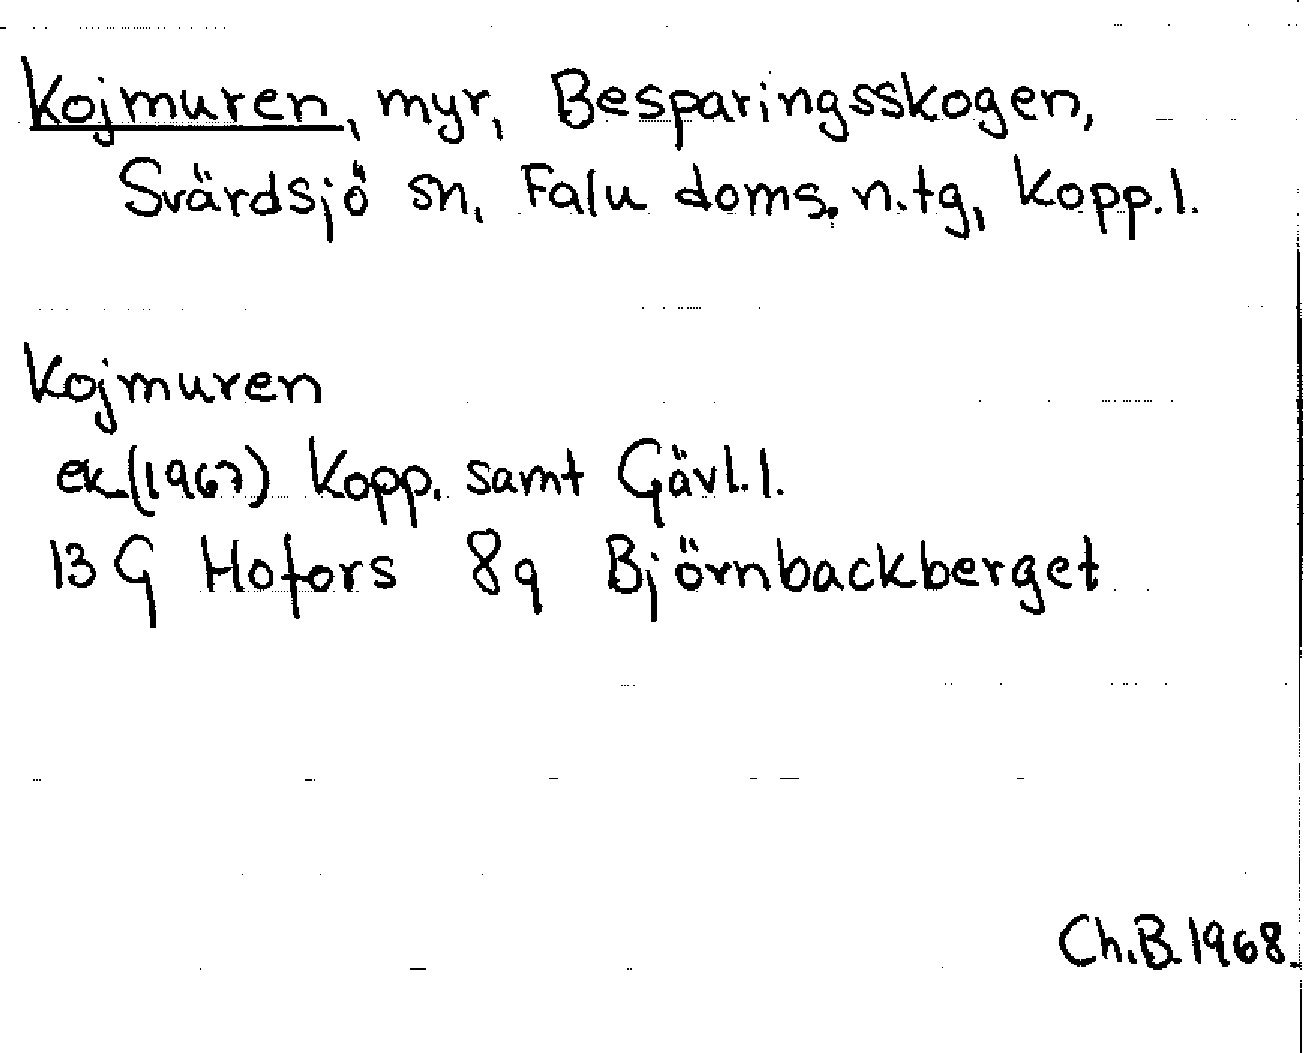 Kojmuren, myr, Besparingsskogen,
Svärdsjö sn, Falu doms. n.tg, Kopp. l.
Kojmuren
ek (1967) Kopp. samt Gävl. l.
13 G Hofors 8q Björnbackberget
Ch.B. 1968.